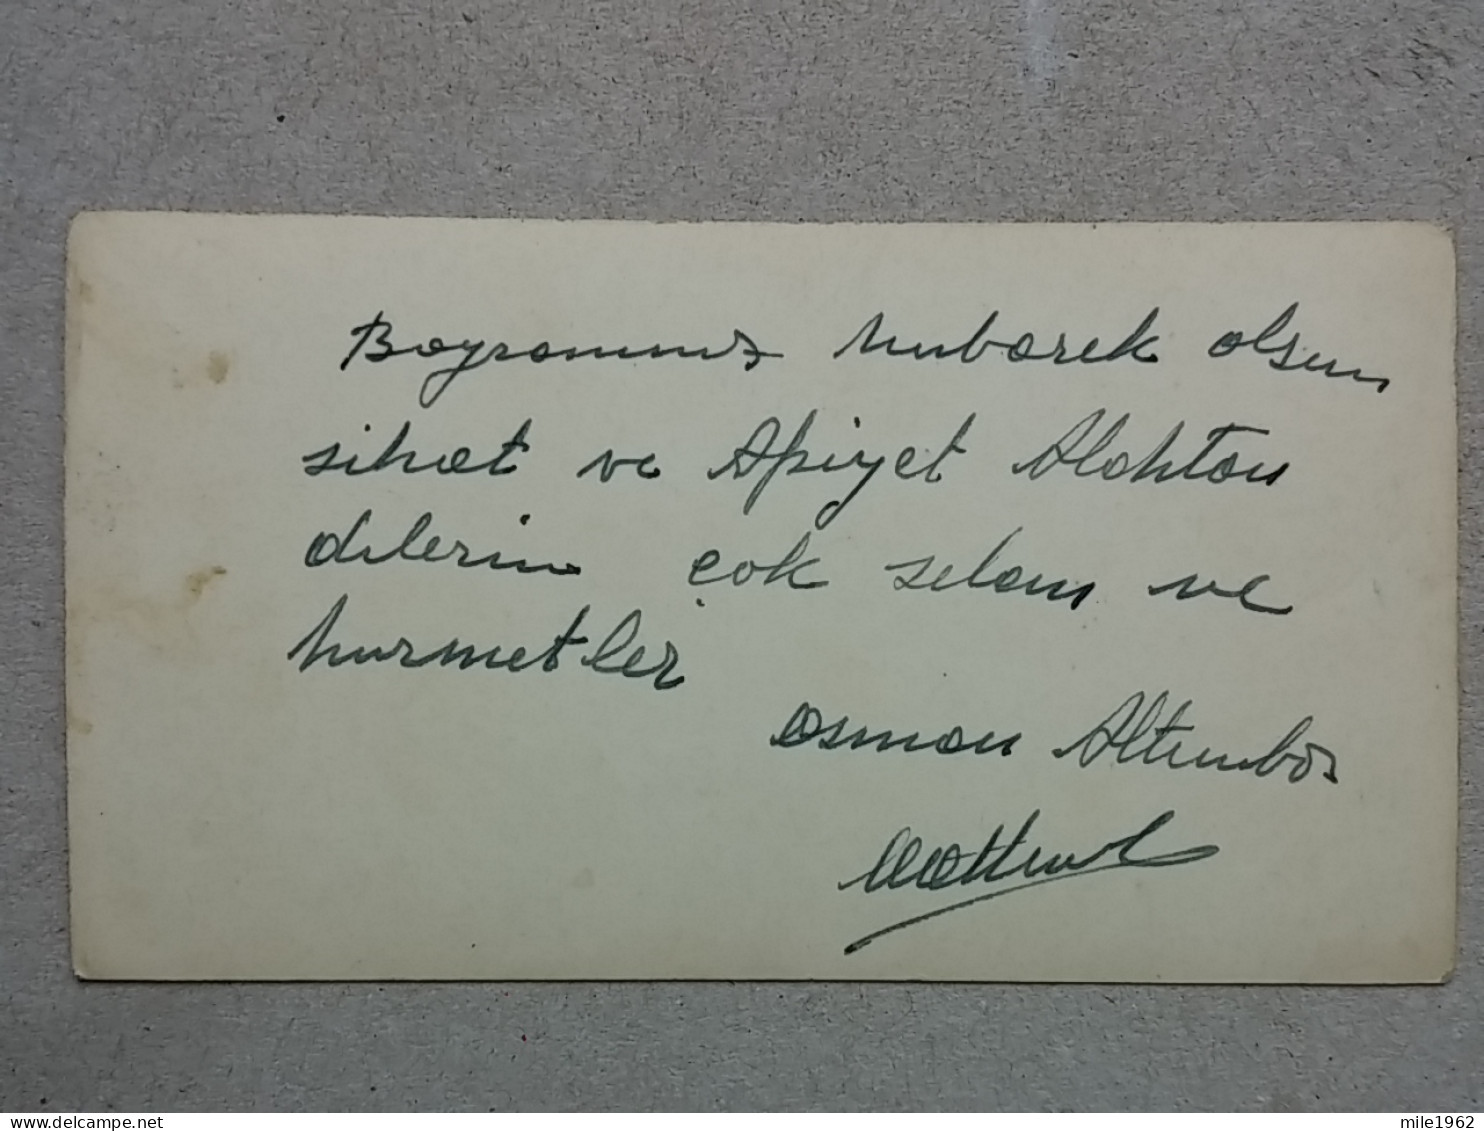 Bayramınız mubarek olsun
sihat ve Afiyet Alahtan
dilerim çok selam ve
hurmetler
Osman Altunbaş
delcampe.net
mile1962